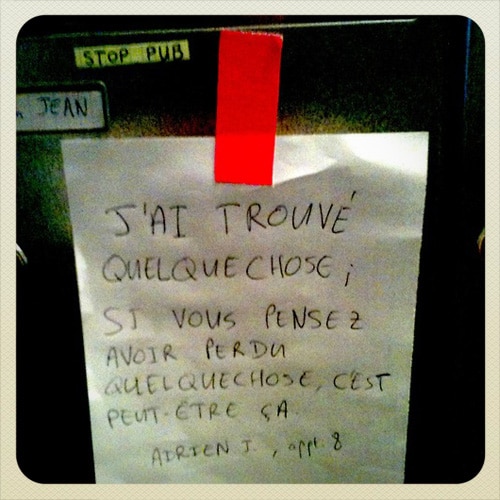 STOP PUB
JEAN
J'AI TROUVÉ
QUELQUECHOSE;
SI VOUS PENSEZ
AVOIR PERDU
QUELQUECHOSE, C'EST
PEUT-ÊTRE ÇA.
ADRIEN J., appt 8